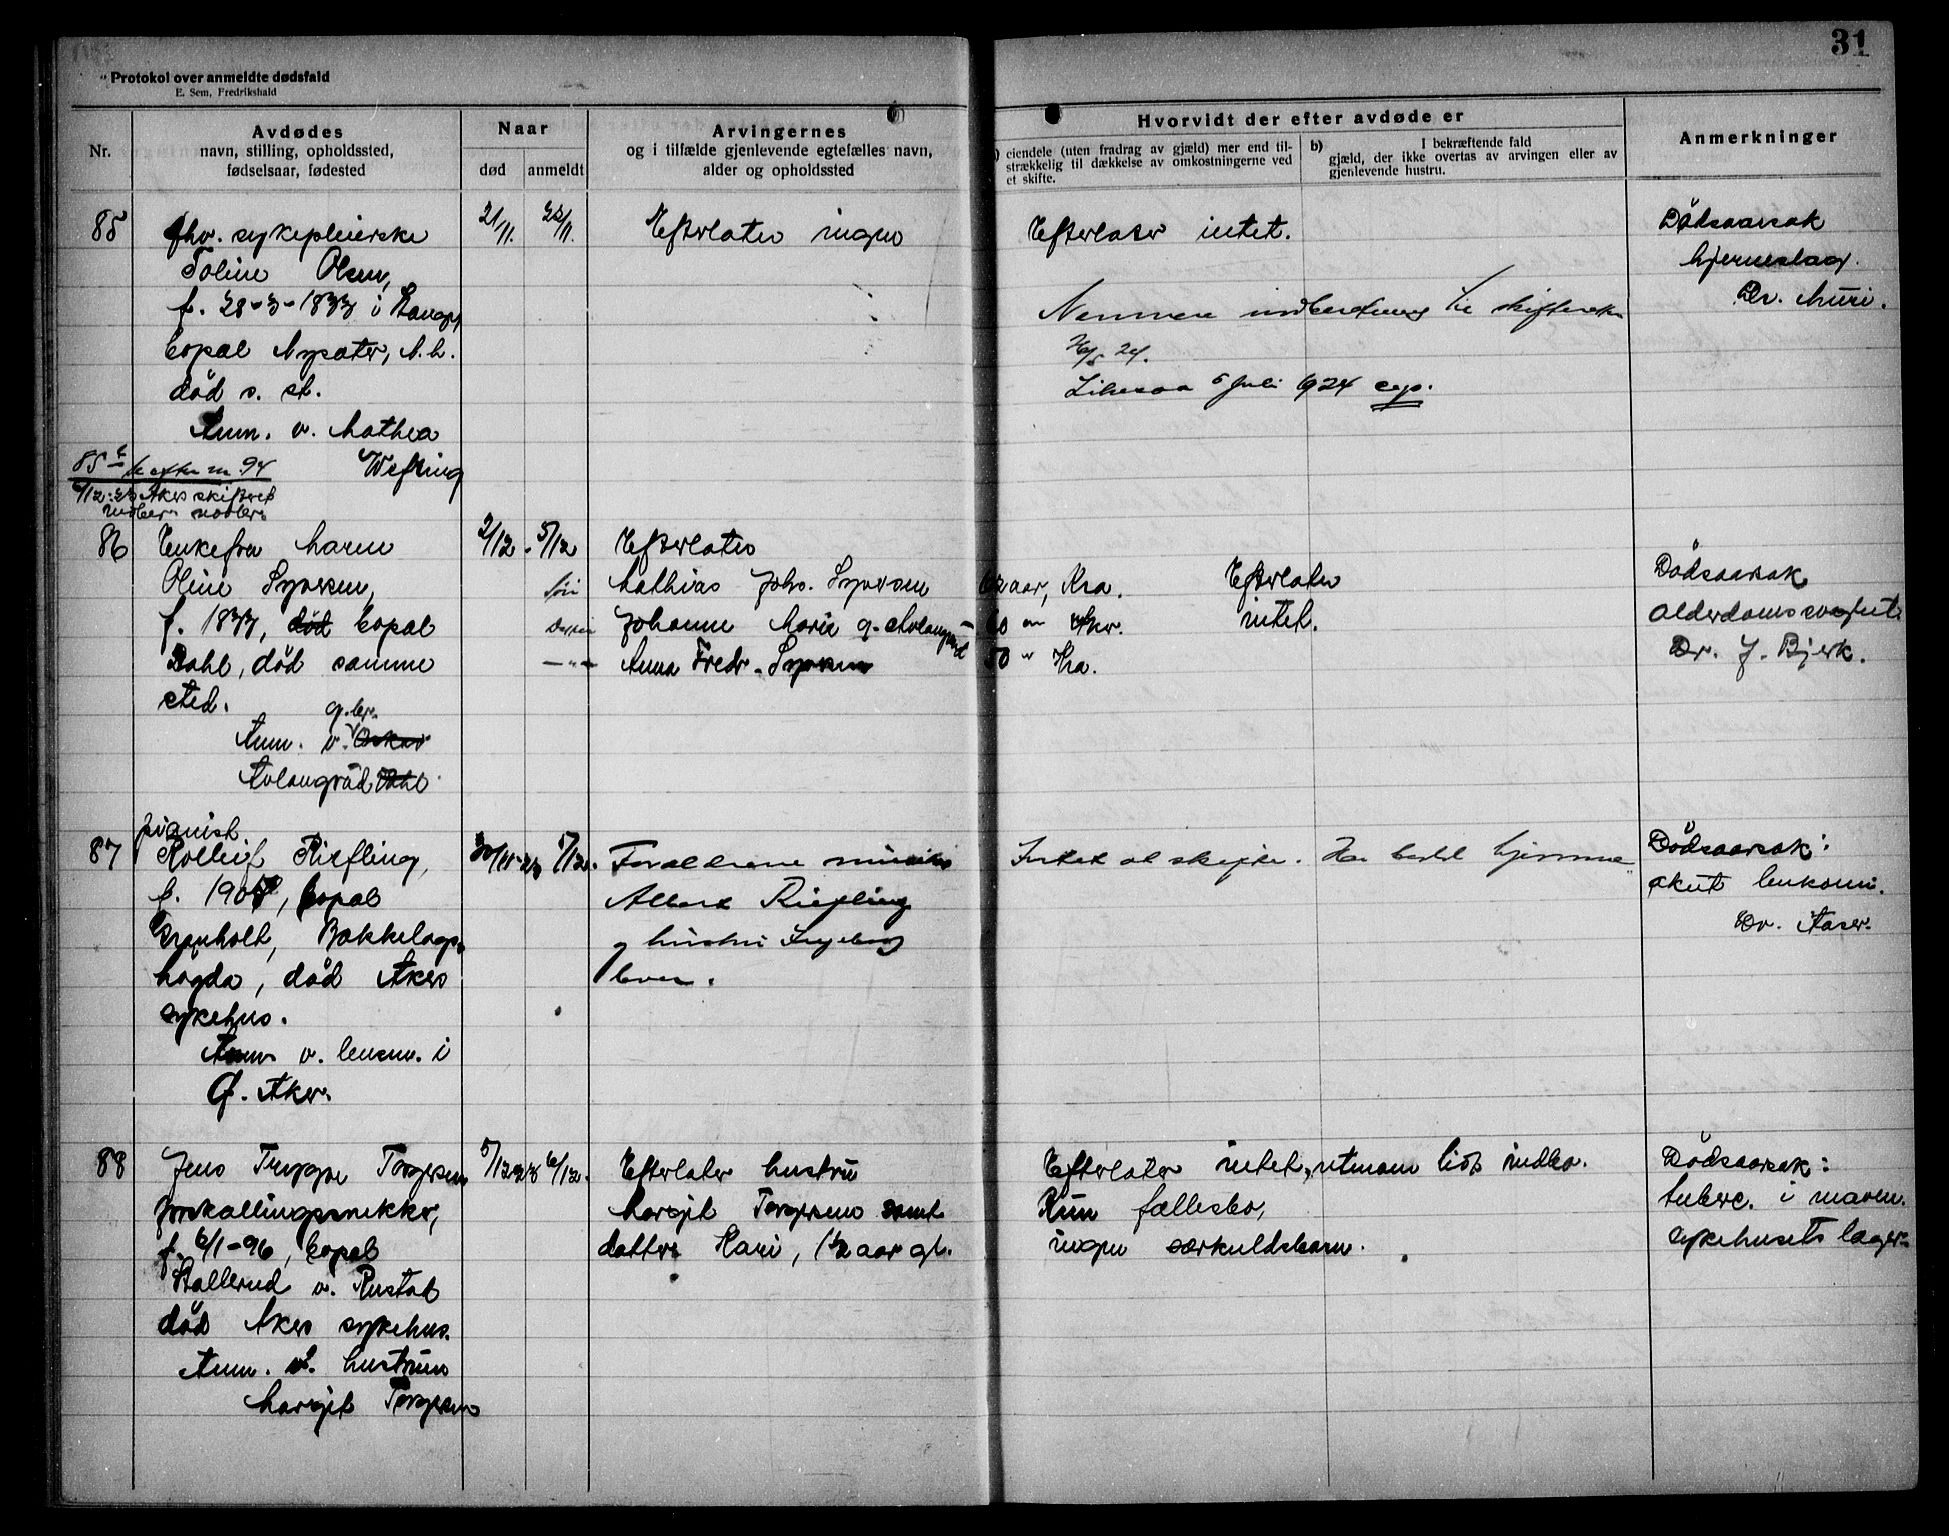 31
Protokol over anmeldte dødsfald
E. Sem, Fredrikshald
Nr.
Avdødes
navn, stilling, opholdssted,
fødselsaar, fødested
Naar
død
anmeldt
Arvingernes
og i tilfælde gjenlevende egtefælles navn,
alder og opholdssted
Hvorvidt der efter avdøde er
eiendele (uten fradrag av gjæld) mer end til-
strækkelig til dækkelse av omkostningerne ved
et skifte.
b) I bekræftende fald
gjæld, der ikke overtas av arvingen eller av
gjenlevende hustru.
Anmerkninger
85
fhv. sykepleierske
Toline Olsen,
f. 28-3-1833 i
bopæl Nysæter, N.h.
død s. st.
Anm. v. Mathea
Wefring
21/11.
22/11.
Efterlater ingen
Efterlater intet.
Nærmere indberetning til skifteretten
24.
Likesaa 5 juli 1924
Dödsaarsak
hjerneslag.
Dr. Muri.
85
efter nr. 94
6/12-23 Akers skifteret
86
Enkefru Maren
Oline Syversen,
f. 1833, død bopæl
Dahl, død samme
sted.
Anm. v. Oskar
Avlangrud Dahl
2/12.
5/12
Efterlater
Søn Mathias Johs. Syversen 62 aar, Kra.
Johanne Marie g. Avlangrud 60 " Aker.
—"— Anna Fredr. Syversen 50 " Kra.
Efterlater
intet.
Dödsaarsak
alderdomssvaghet
Dr. J. Bjerk.
87
pianist
Rolleif Riefling,
f. 190, bopæl
Granholt, Bekkelags-
høgda, død Akers
sykehus.
Anm. v. lensm. i
Ø. Aker.
30/11-23
5/12.
Forældrene musiker
Albert Riefling
og hustru Ingeborg
lever.
Intet at skifte. Har bodd hjemme
Dödsaarsak:
akut leukæmi.
Dr. Aaser.
88
Jens Trygve Torgersen
forskallingssnekker,
f. 6/1-96, bopæl
Stallerud v. Rustad
død Akers sykehus.
Anm. av hustruen
Margit Torgersen
5/12-23
6/12.
Efterlater hustru
Margit Torgersen samt
datter Kari, 1½ aar gl.
Efterlater intet, utenom lidt indbo.
Kun fællesbo,
ingen særkuldsbarn.
Dödsaarsak:
tuberc. i maven.
sykehusets læger.